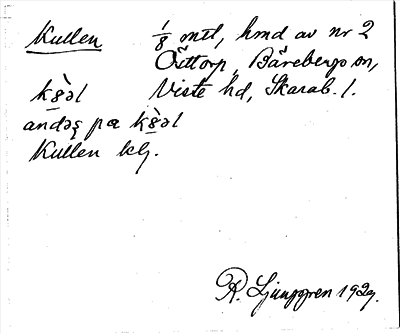 Kullen 1/8 mtl, hmd av nr 2
Öttorp, Bärebergs sn,
Viste hd, Skarab. l.
kə̀əl
andəs pa kə̀əl
Kullen klj.
R. Ljunggren 1929.